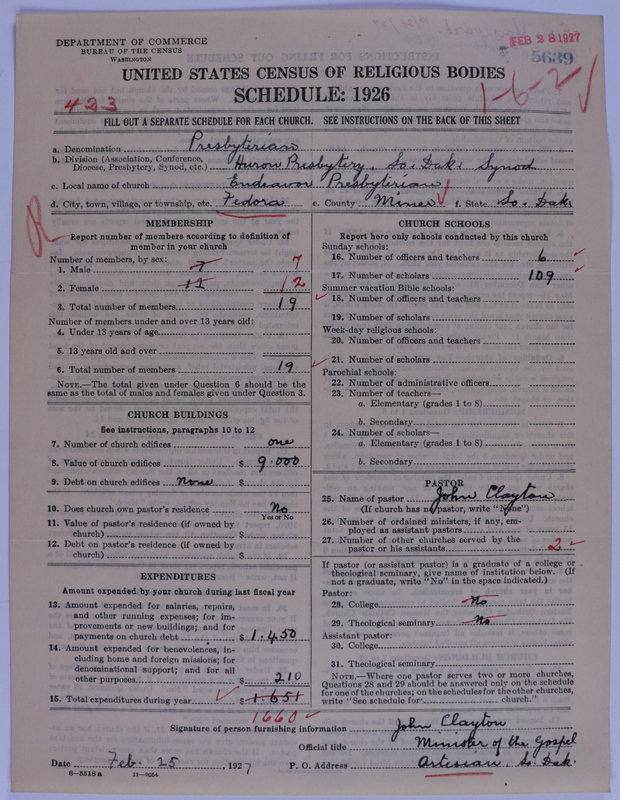 DEPARTMENT OF COMMERCE
BUREAU OF THE CENSUS
WASHINGTON
FEB 28 1927
5639
UNITED STATES CENSUS OF RELIGIOUS BODIES
SCHEDULE: 1926
423
1-6-2
FILL OUT A SEPARATE SCHEDULE FOR EACH CHURCH. SEE INSTRUCTIONS ON THE BACK OF THIS SHEET
a. Denomination Presbyterian
b. Division (Association, Conference, Diocese, Presbytery, Synod, etc.) Huron Presbytery, So. Dak. Synod
c. Local name of church Endeavor Presbyterian
d. City, town, village, or township, etc. Fedora e. County Miner f. State So. Dak.
R
MEMBERSHIP
Report number of members according to definition of
member in your church
Number of members, by sex:
1. Male 7 7
2. Female 12 12
3. Total number of members 19
Number of members under and over 13 years old:
4. Under 13 years of age
5. 13 years old and over
6. Total number of members 19
NOTE.—The total given under Question 6 should be the
same as the total of males and females given under Question 3.
CHURCH BUILDINGS
See instructions, paragraphs 10 to 12
7. Number of church edifices one
8. Value of church edifices $ 9.000
9. Debt on church edifices None $
10. Does church own pastor's residence No
Yes or No
11. Value of pastor's residence (if owned by
church) $
12. Debt on pastor's residence (if owned by
church) $
EXPENDITURES
Amount expended by your church during last fiscal year
13. Amount expended for salaries, repairs,
and other running expenses; for im-
provements or new buildings; and for
payments on church debt $ 1.450
14. Amount expended for benevolences, in-
cluding home and foreign missions; for
denominational support; and for all
other purposes $ 210
15. Total expenditures during year $ 1.651
1660
CHURCH SCHOOLS
Report here only schools conducted by this church
Sunday schools:
16. Number of officers and teachers 6
17. Number of scholars 109
Summer vacation Bible schools:
18. Number of officers and teachers
19. Number of scholars
Week-day religious schools:
20. Number of officers and teachers
21. Number of scholars
Parochial schools:
22. Number of administrative officers
23. Number of teachers—
a. Elementary (grades 1 to 8)
b. Secondary
24. Number of scholars—
a. Elementary (grades 1 to 8)
b. Secondary
PASTOR
25. Name of pastor John Clayton
(If church has no pastor, write "None")
26. Number of ordained ministers, if any, em-
ployed as assistant pastors
27. Number of other churches served by the
pastor or his assistants 2
If pastor (or assistant pastor) is a graduate of a college or
theological seminary, give name of institution below. (If
not a graduate, write "No" in the space indicated.)
Pastor:
28. College No
29. Theological seminary No
Assistant pastor:
30. College
31. Theological seminary
NOTE.—Where one pastor serves two or more churches,
Questions 28 and 29 should be answered only on the schedule
for one of the churches; on the schedules for the other churches,
write "See schedule for church."
Signature of person furnishing information John Clayton
Official title Minister of the Gospel
Date Feb. 25, 1927 P. O. Address Artisian, So. Dak.
8—5518 a 11—9054